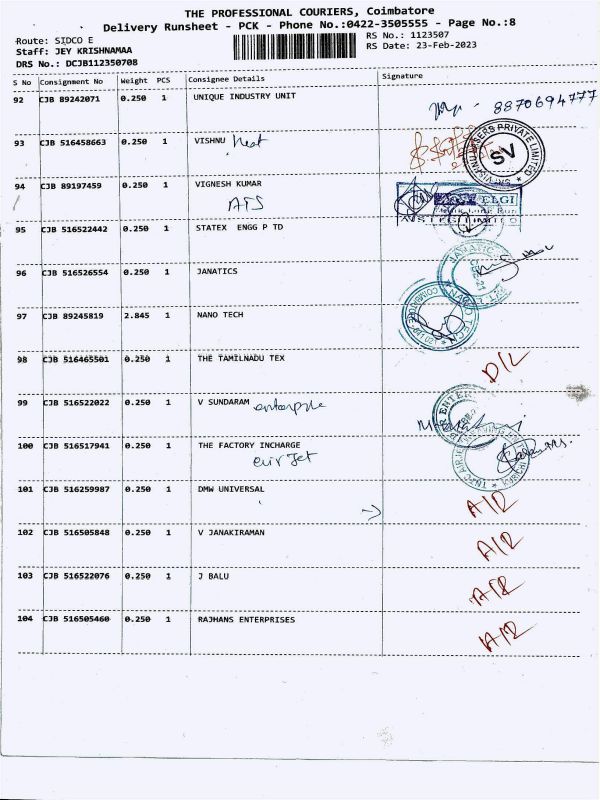 THE PROFESSIONAL COURIERS, Coimbatore
Delivery Runsheet - PCK - Phone No.:0422-3505555 - Page No.:8
Route: SIDCO E
RS No.: 1123507
Staff: JEY KRISHNAMAA
RS Date: 23-Feb-2023
DRS No.: DCJB112350708
S No Consignment No Weight PCS Consignee Details Signature
92 CJB 89242071 0.250 1 UNIQUE INDUSTRY UNIT
8870694777
93 CJB 516458663 0.250 1 VISHNU
PRIVATE LIMITED
SV
94 CJB 89197459 0.250 1 VIGNESH KUMAR
ELGI
ATS
95 CJB 516522442 0.250 1 STATEX ENGG P TD
96 CJB 516526554 0.250 1 JANATICS
97 CJB 89245819 2.845 1 NANO TECH
NANO TECH
98 CJB 516465501 0.250 1 THE TAMILNADU TEX
D/L
99 CJB 516522022 0.250 1 V SUNDARAM
100 CJB 516517941 0.250 1 THE FACTORY INCHARGE
air jet
101 CJB 516259987 0.250 1 DMW UNIVERSAL
A/R
102 CJB 516505848 0.250 1 V JANAKIRAMAN
A/R
103 CJB 516522076 0.250 1 J BALU
A/R
104 CJB 516505460 0.250 1 RAJHANS ENTERPRISES
A/R